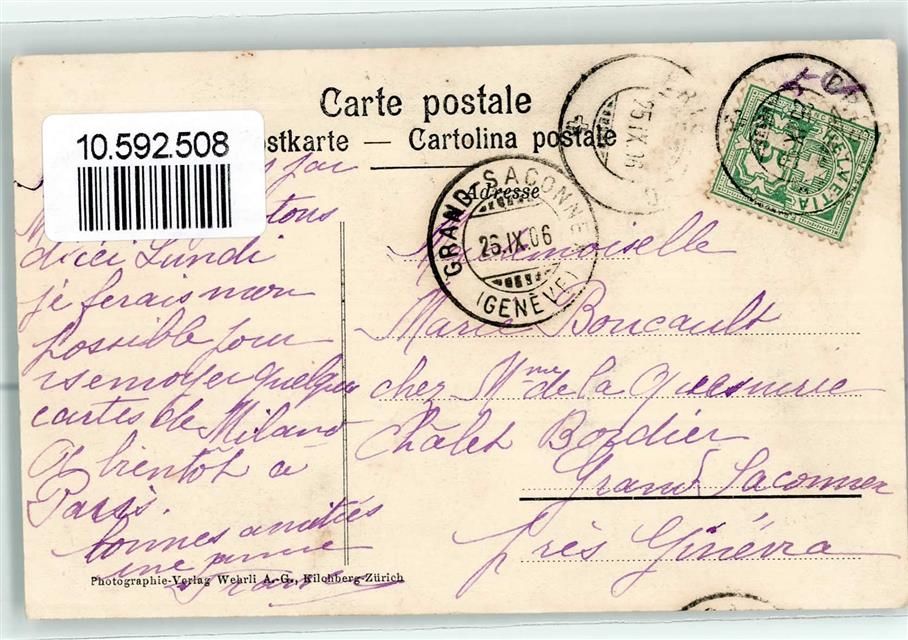 Carte postale
ostkarte — Cartolina postale
10.592.508
Adresse
GRAND SACONNEX
26.IX.06
(GENÈVE)
25.IX.06
HELVETIA
par
tons
d'ici Lundi
je ferais mon
possible pour
r'emoyer quelques
cartes de Milano
A bientôt à
Paris.
bonnes amitiés
une amie
Mademoiselle
Marie Boucault
chez Mme de la Quesnerie
Châlet Bordier
Grand Saconnex
près Ginèvra
Photographie-Verlag Wehrli A.-G., Kilchberg-Zürich